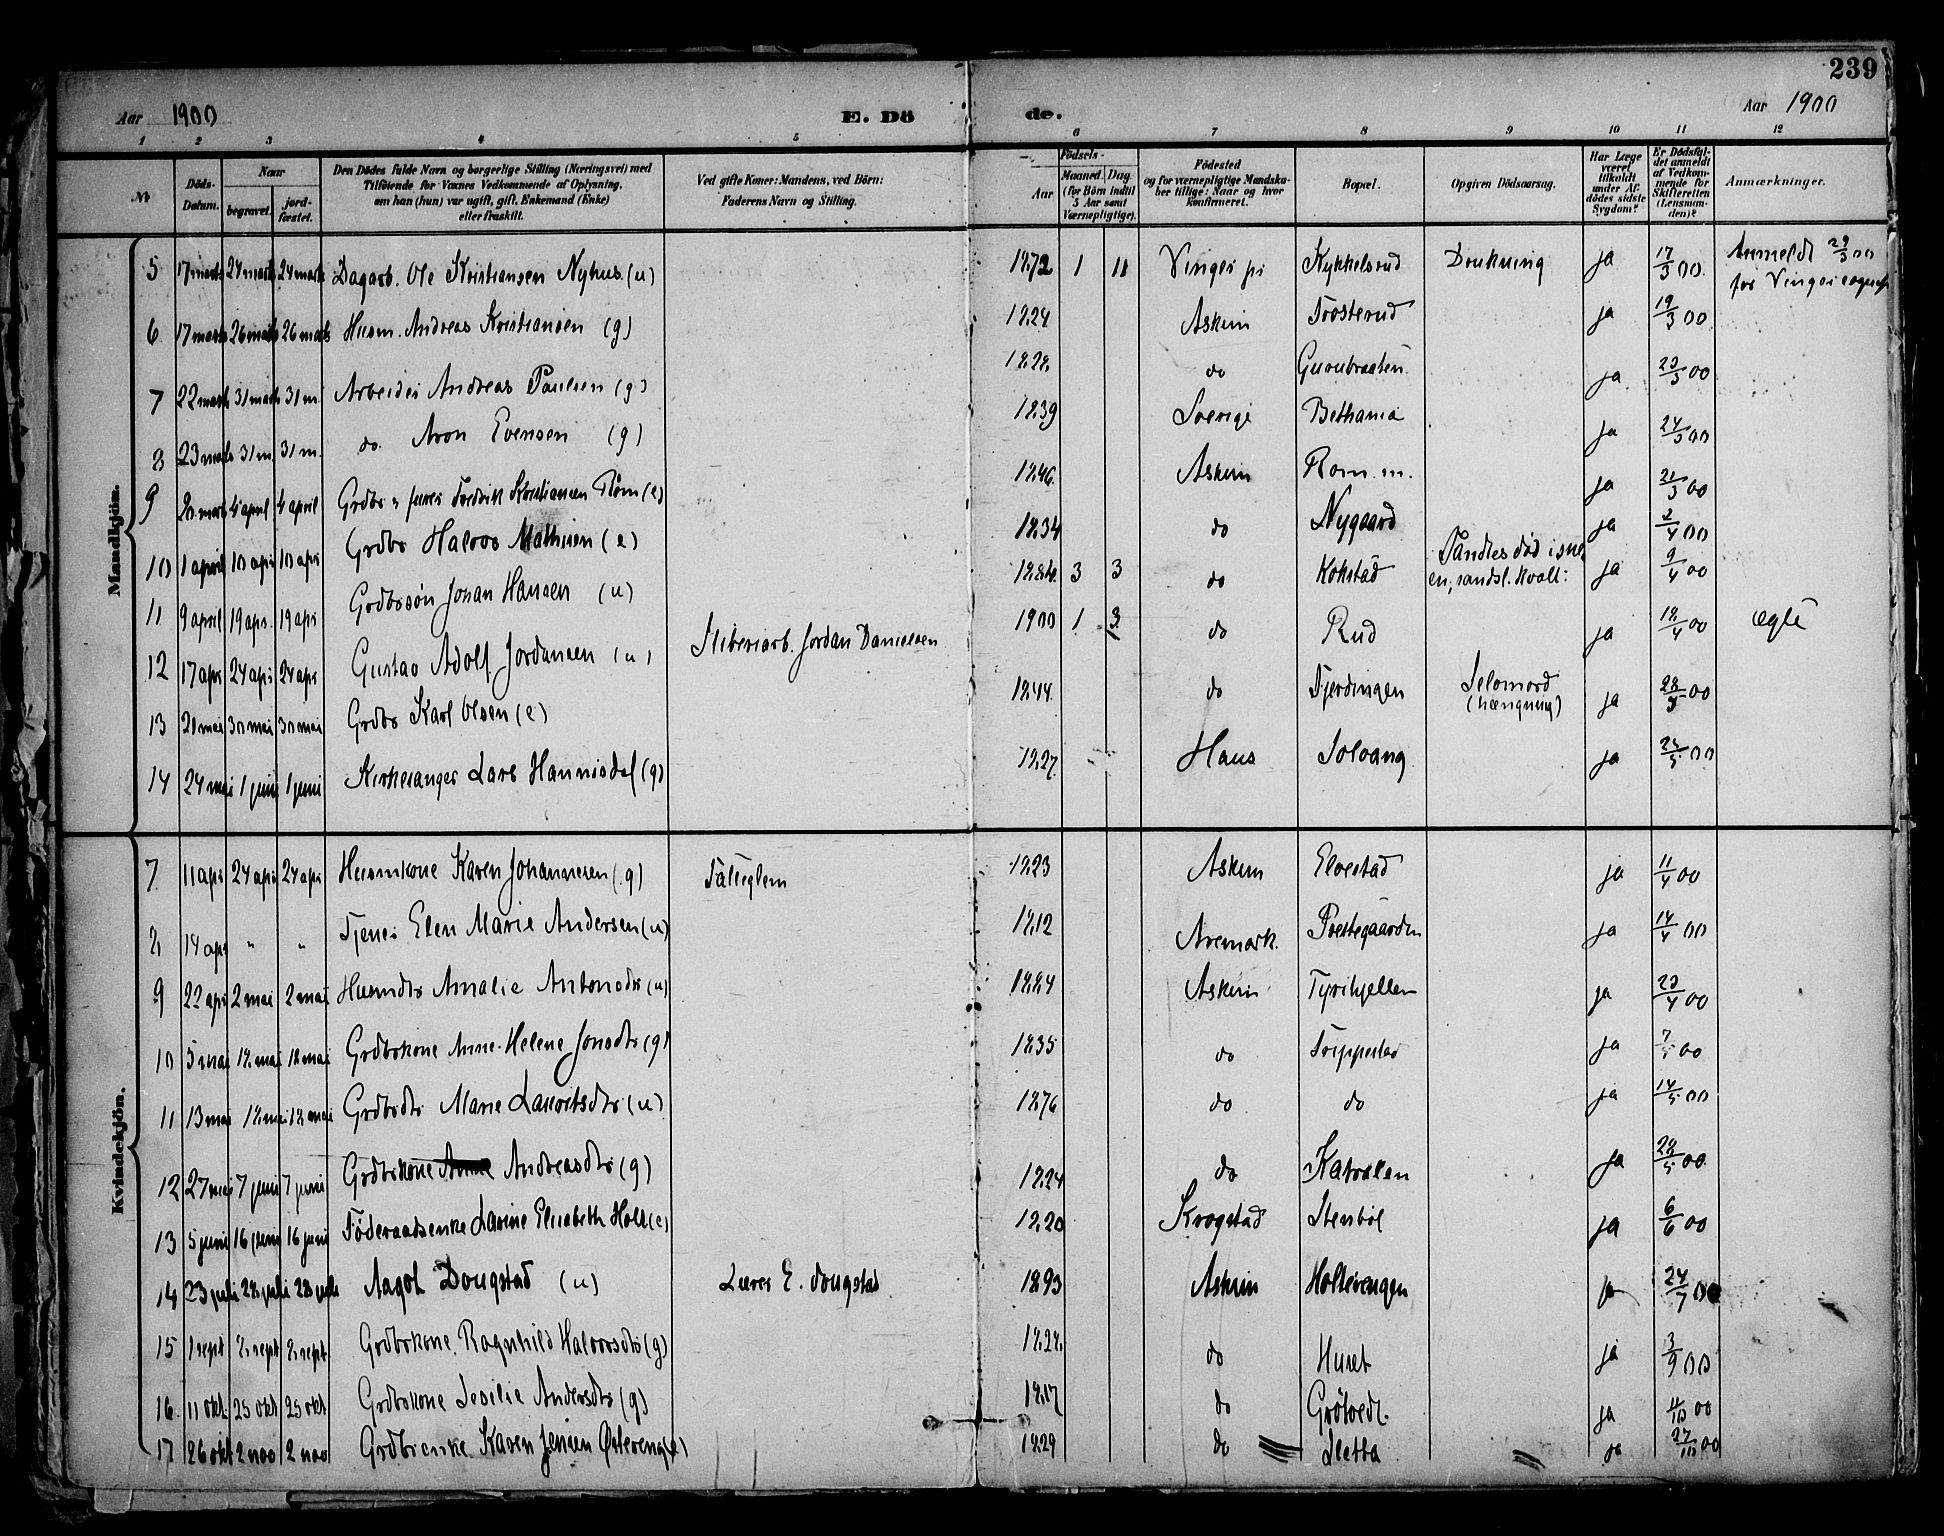 239
Aar 1900 E. Dö de. Aar 1900
1 2 3 4 5 6 7 8 9 10 11 12
No
Döds-Datum.
Naar
begravet.
jord-fæstet.
Den Dödes fulde Navn og borgerlige Stilling (Næringsvei) med
Tilföiende for Voxnes Vedkommende af Oplysning,
om han (hun) var ugift, gift, Enkemand (Enke)
eller fraskilt.
Ved gifte Koner: Mandens, ved Börn:
Faderens Navn og Stilling.
Födsels-
Aar
Maaned. Dag.
(for Börn indtil
5 Aar samt
Værnepligtige).
Födested
og for værnepligtige Mandska-
ber tillige: Naar og hvor
konfirmeret.
Bopæl.
Opgiven Dödsaarsag.
Har Læge
været
tilkaldt
under Af-
dödes sidste
Sygdom?
Er Dödsfal-
det anmeldt
af Vedkom-
mende for
Skifteretten
(Lensman-
den)?
Anmærkninger.
Mandkjön.
5 17 marts 24 marts 24 marts Dagarb. Ole Kristiansen Nyhus (u) 1872 1 11 Vinger pr Kykkelsrud Drukning ja 17/3 00. Anmeldt 29/3 00
for Vinger sognepr
6 17 marts 26 marts 26 marts Husm. Andreas Kristiansen (g) 1824 Askim Trosterud ja 19/3 00
7 22 marts 31 marts 31 m. Arbeider Andreas Paulsen (g) 1828 do Gunubraaten ja 23/3 00
8 23 marts 31 m. 31 m. do. Aron Evensen (g) 1839 Sverige Bethania ja 24/3 00
9 4 april 4 april Grdbr Fredrik Kristiansen Röm (e) 1846 Askim Rom m. ja 21/3 00
10 1 april 10 apr 10 apr Grdbr Halvor Mathisen (e) 1834 do Nygaard ja 2/4 00
11 9 april 19 apr. 19 apr Grdbrsön Johan Hansen (u) 1884 3 3 do Kokstad Fandtes död i
en, sandsl. kvalt: ja 9/4 00
12 17 apr 24 apr 24 apr Gustav Adolf Jordansen (u) Sliberiarb. Jordan Danielsen 1900 1 3 do Rud ja 18/4 00 ægte
13 28 mai 30 mai 30 mai Grdbr Karl Olsen (e) 1844 do Fjerdingen Selvmord
(hængning) ja 28/5 00
14 24 mai 1 juni 1 juni Kirkesanger Lars Hannisdal (g) 1827 Haus Solvang ja 25/5 00
Kvindekjön.
7 11 apr 24 apr 24 apr Husmkone Karen Johannesen (g) Fattiglem 1823 Askim Elvestad ja 11/4 00
8 14 apr " " Tjener Elen Marie Andersen (u) 1812 Aremark. Prestegaarden ja 14/4 00
9 22 apr 2 mai 2 mai Husmdtr Amalie Antonsdtr (u) 1884 Askim Tyrihjellen ja 23/4 00
10 5 mai 12 mai 12 mai Grdbrkone Anne Helene Jonsdtr (g) 1835 do Trippestad ja 7/5 00
11 13 mai 18 mai 18 mai Grdbrdtr Marie Lauritsdtr (u) 1876 do do ja 14/5 00
12 27 mai 7 juni 7 juni Grdbrkone Andreasdtr (g) 1824 do Katralen ja 28/5 00
13 5 juni 16 juni 16 juni Föderaadsenke Larine Elisabeth Holt (e) 1820 Krogstad Stenböl ja 6/6 00
14 23 juli 28 juli 28 juli Aagot Dougstad (u) Lærer E. Dougstad 1893 Askim Holtevengen ja 24/7 00
15 1 sept 8 sept 8 sept Grdbrkone Ragnhild Halvorsdtr (g) 1828 do Huset ja 3/9 00
16 11 okt. 25 okt 25 okt Grdbrkone Sesilie Andersdtr (g) 1817 do Grötvedt ja 11/10 00
17 26 okt 2 nov 2 nov Grdbrenke Karen Jensen Østereng (e) 1829 do Sletta ja 27/10 00